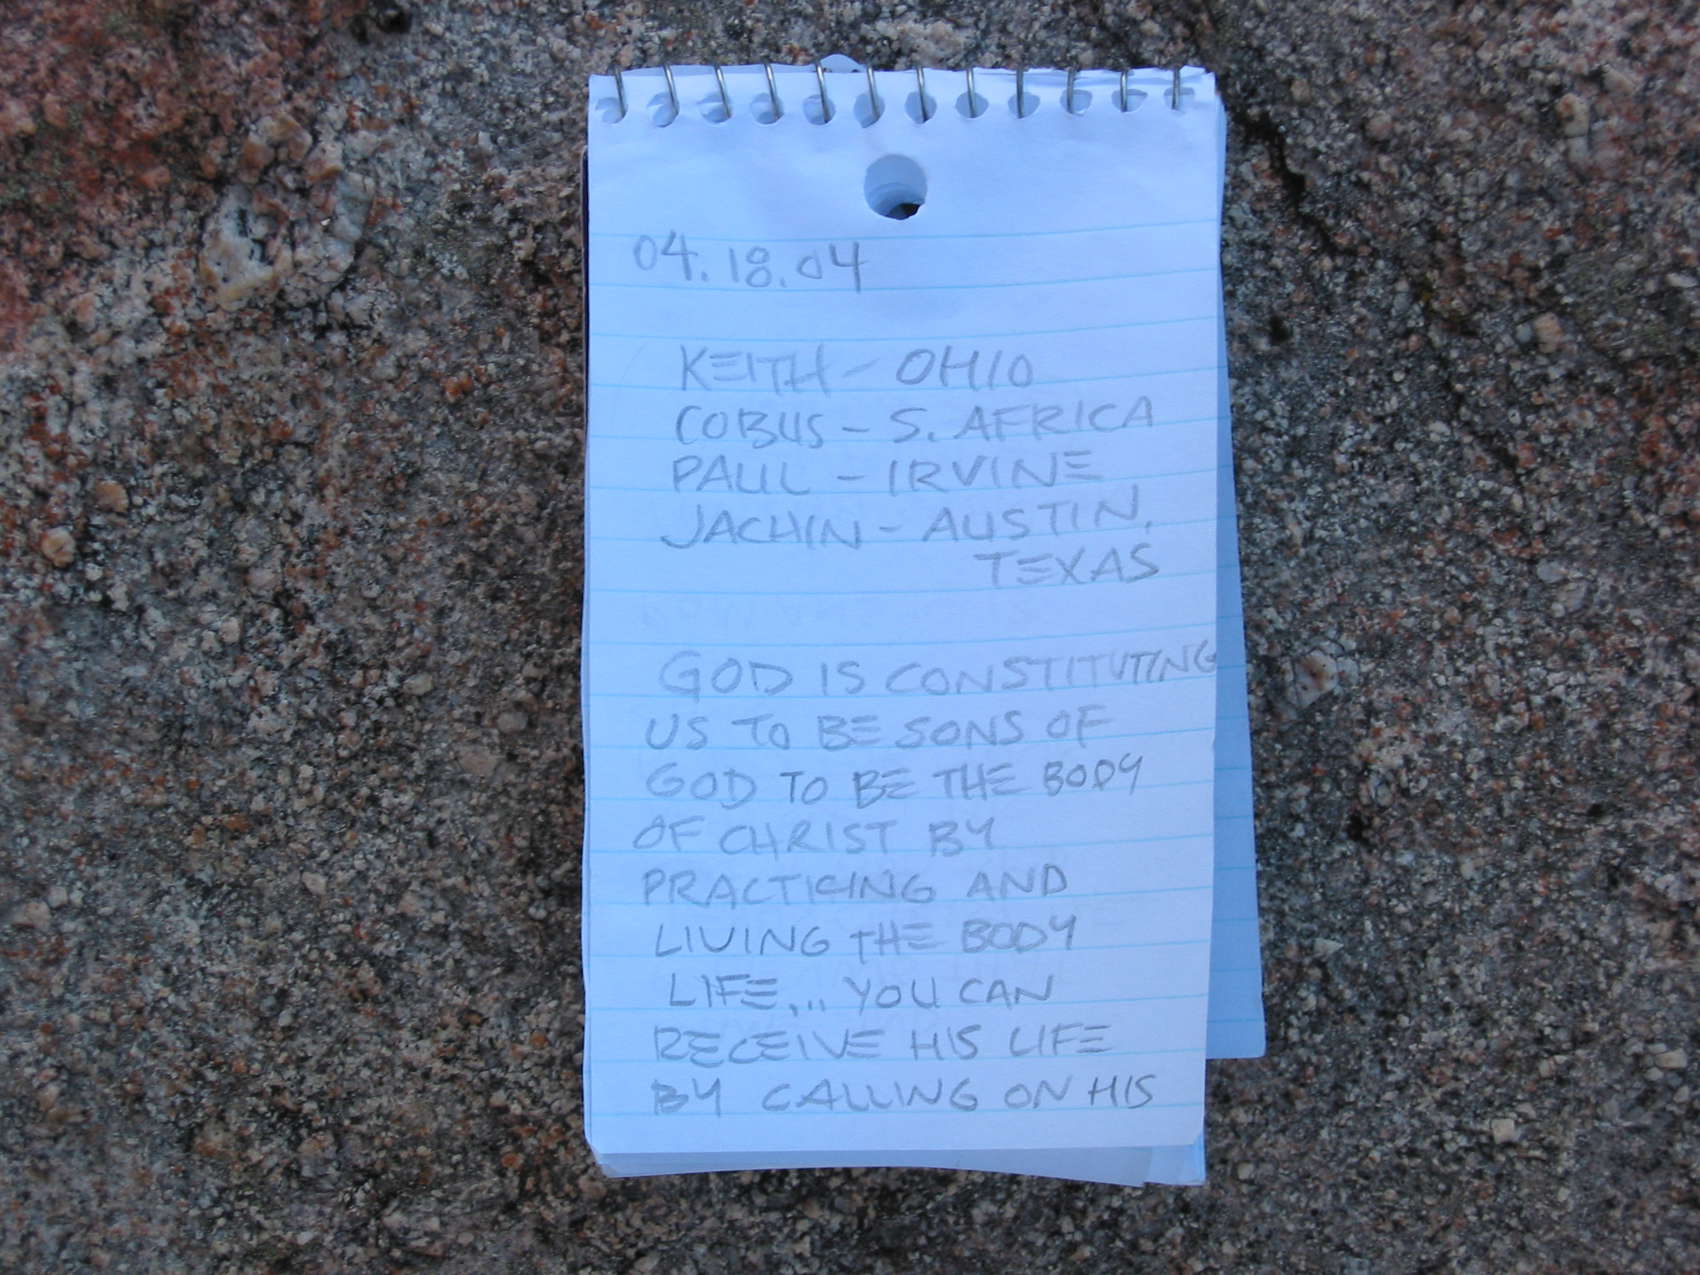 04.18.04
KEITH - OHIO
COBUS - S. AFRICA
PAUL - IRVINE
JACHIN - AUSTIN,
TEXAS
GOD IS CONSTITUTING
US TO BE SONS OF
GOD TO BE THE BODY
OF CHRIST BY
PRACTICING AND
LIVING THE BODY
LIFE... YOU CAN
RECEIVE HIS LIFE
BY CALLING ON HIS